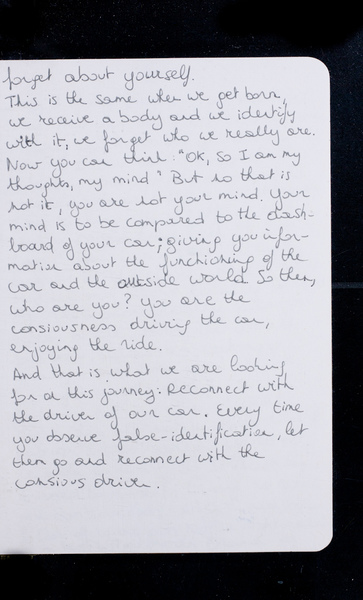 forget about yourself.
This is the same when we get born,
we receive a body and we identify
with it, we forget who we really are.
Now you can think: "OK, so I am my
thoughts, my mind" But no that is
not it, you are not your mind. Your
mind is to be compared to the dash-
board of your car; giving you infor-
mation about the functioning of the
car and the outside world. So then,
who are you? You are the
consiousness driving the car,
enjoying the ride.
And that is what we are looking
for on this journey: Reconnect with
the driver of our car. Every time
you observe false-identification, let
them go and reconnect with the
consious driver.